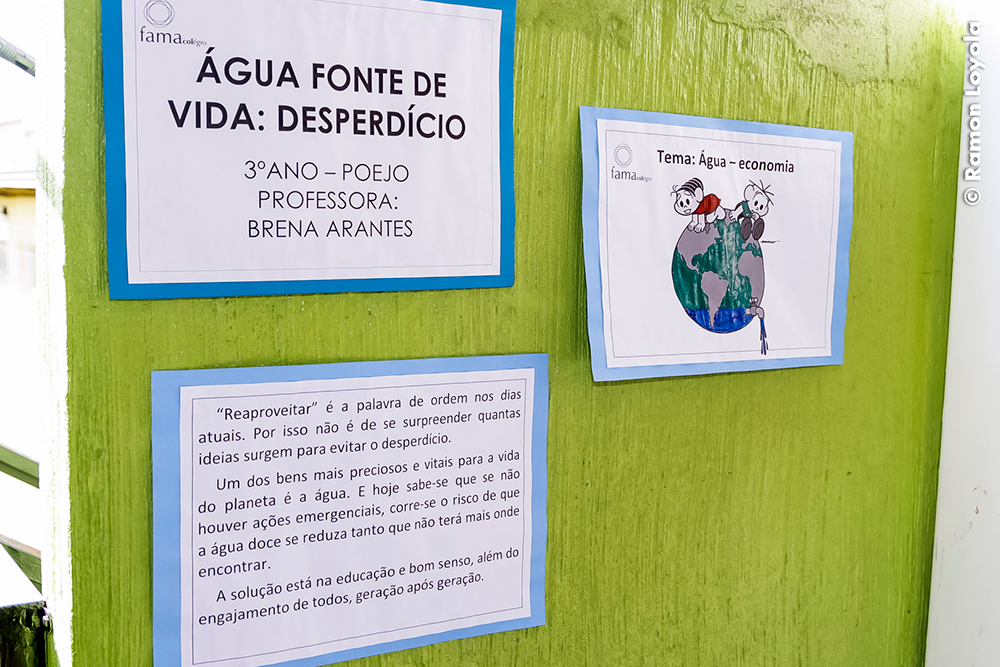 fama colégio
ÁGUA FONTE DE
VIDA: DESPERDÍCIO
3ºANO – POEJO
PROFESSORA:
BRENA ARANTES
fama colégio
Tema: Água – economia
"Reaproveitar" é a palavra de ordem nos dias
atuais. Por isso não é de se surpreender quantas
ideias surgem para evitar o desperdício.
Um dos bens mais preciosos e vitais para a vida
do planeta é a água. E hoje sabe-se que se não
houver ações emergenciais, corre-se o risco de que
a água doce se reduza tanto que não terá mais onde
encontrar.
A solução está na educação e bom senso, além do
engajamento de todos, geração após geração.
© Ramon Loyola